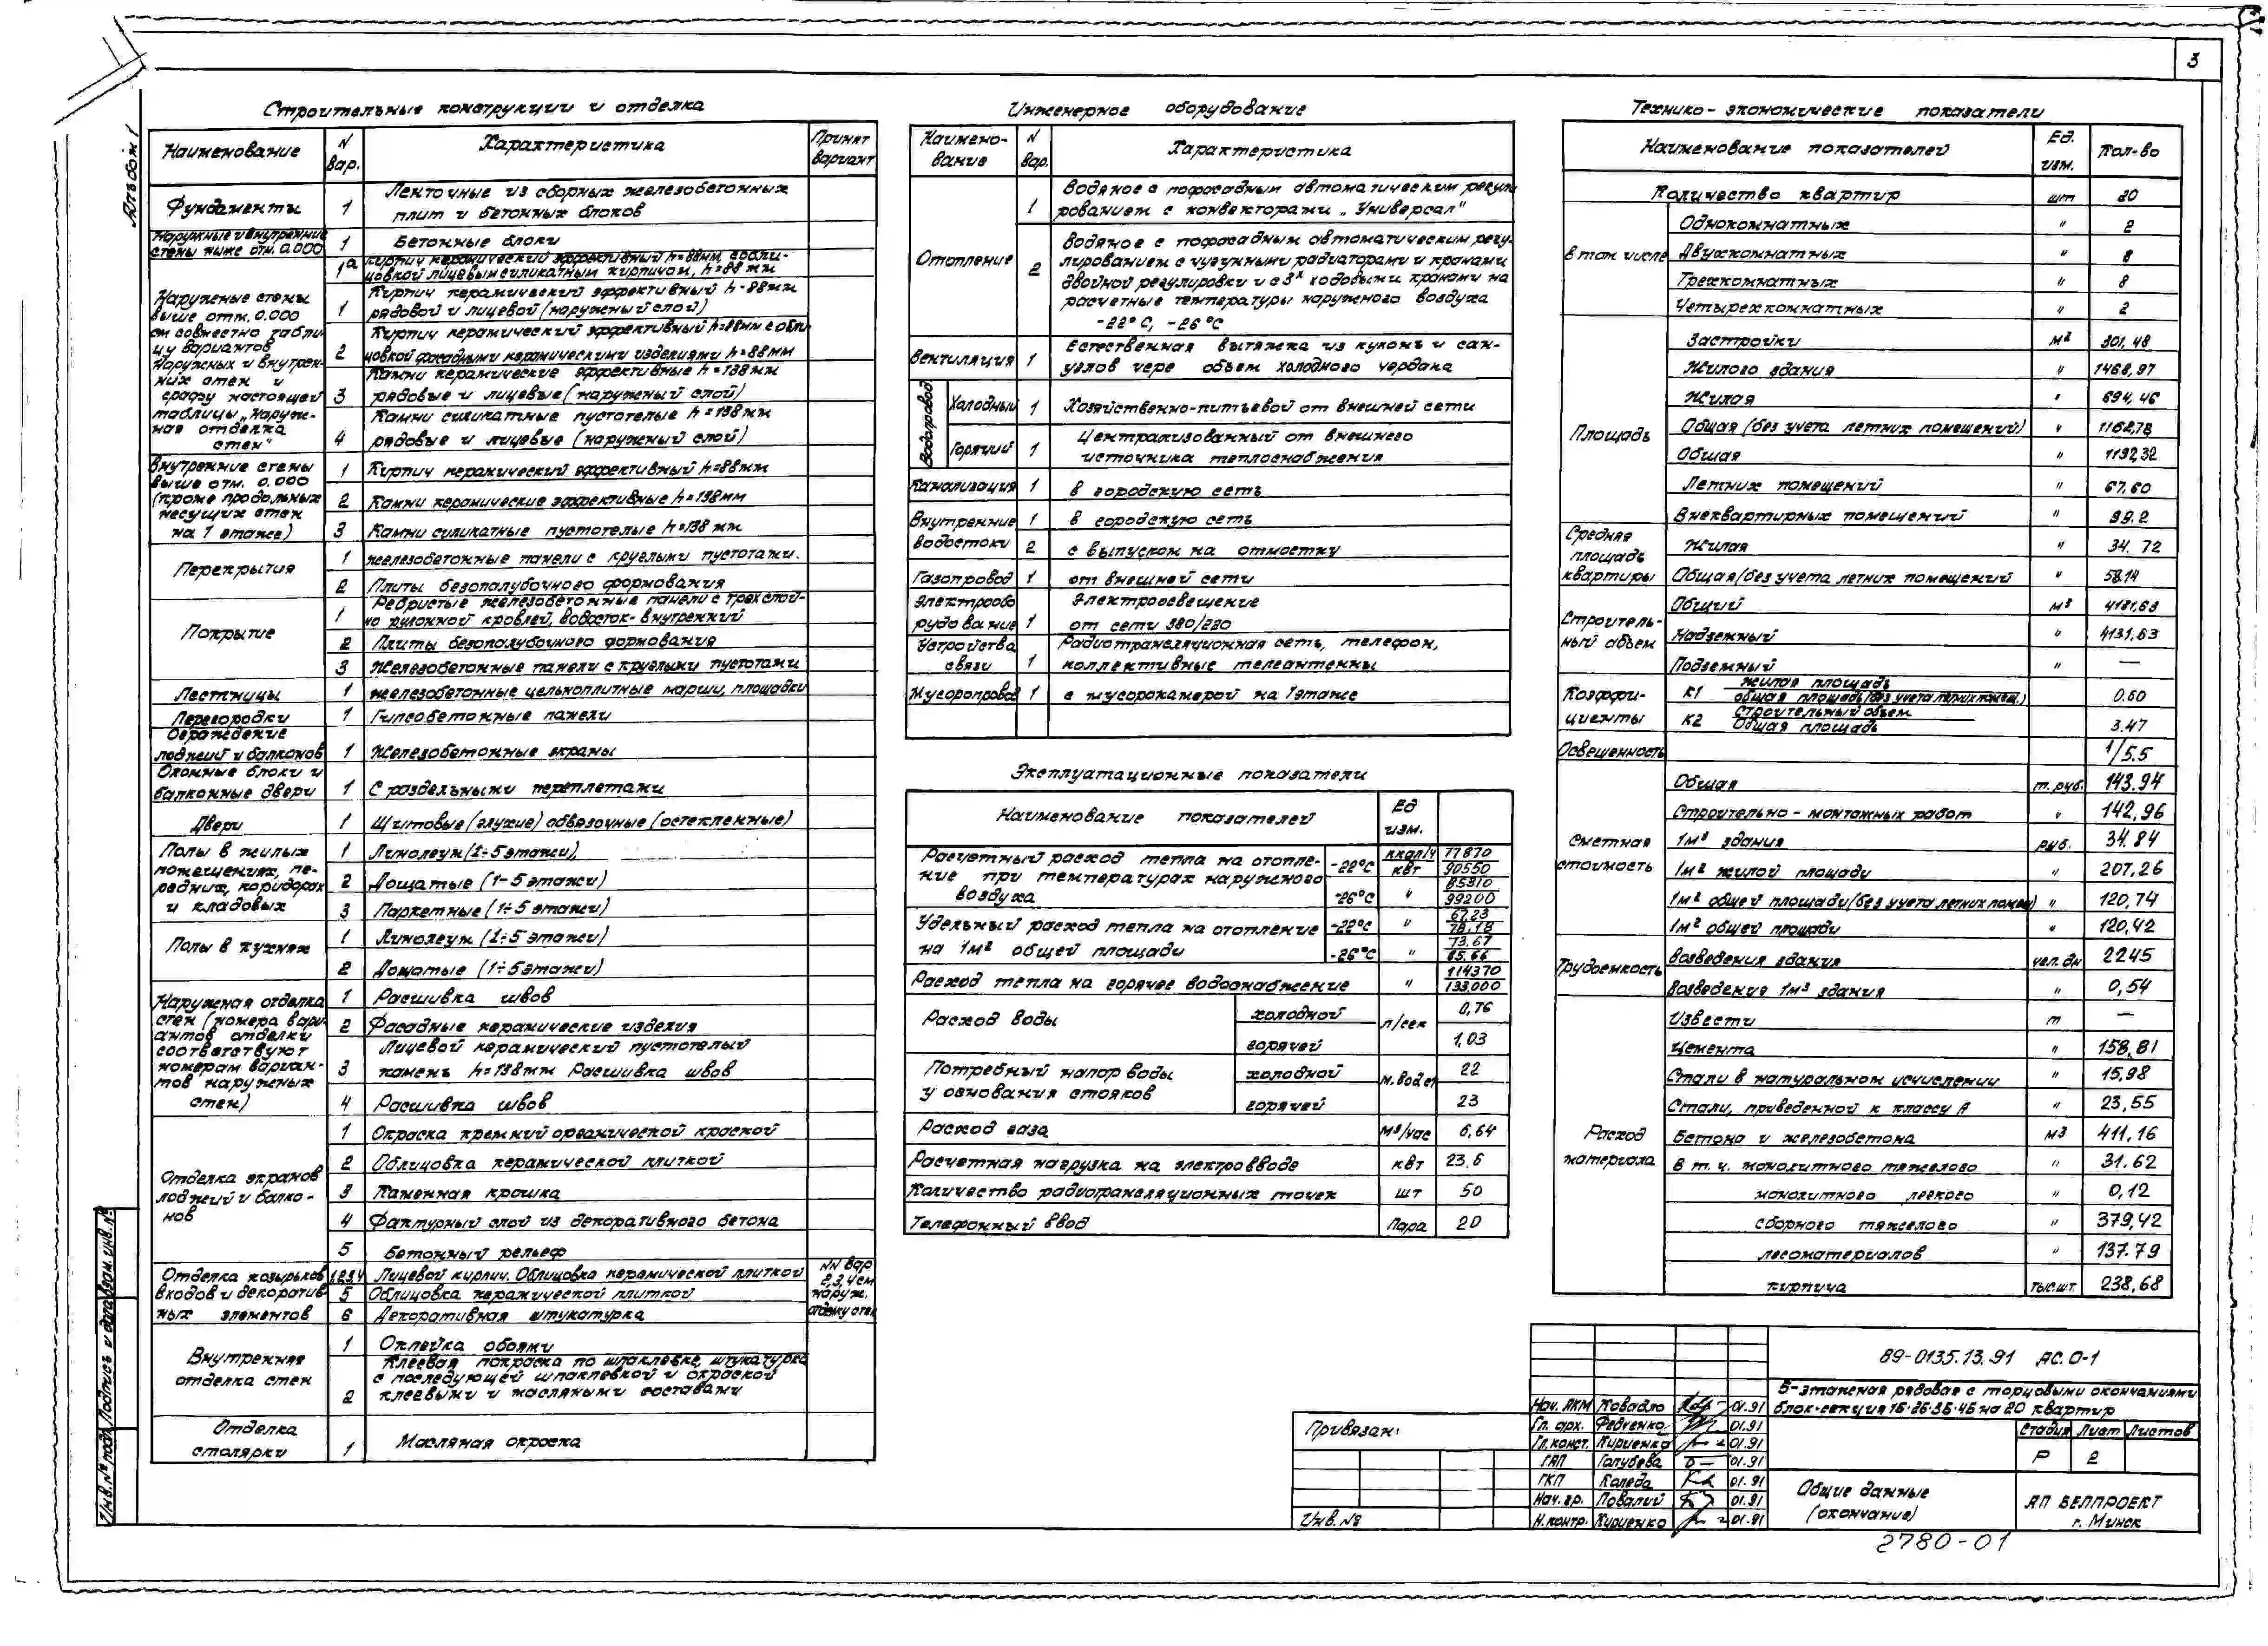 3
Альбом 1
Строительные конструкции и отделка
Наименование
N вар.
Характеристика
Принят вариант
Фундаменты
1
Ленточные из сборных железобетонных
плит и бетонных блоков
Наружные и внутренние
стены ниже отм. 0.000
1
Бетонные блоки
Наружные стены
выше отм. 0.000
см совместно табли-
цу вариантов
наружных и внутрен-
них стен и
графу настоящей
таблицы „Наруж-
ная отделка
стен"
1а
Кирпич керамический эффективный h=88мм, с обли-
цовкой лицевым силикатным кирпичом, h=88 мм
1
Кирпич керамический эффективный h-88мм
рядовой и лицевой (наружный слой)
2
Кирпич керамический эффективный h=88мм с обли
цовкой фасадными керамическими изделиями h=88мм
3
Камни керамические эффективные h=138мм
рядовые и лицевые (наружный слой)
4
Камни силикатные пустотелые h=138мм
рядовые и лицевые (наружный слой)
Внутренние стены
выше отм. 0.000
(кроме продольных
несущих стен
на 1 этаже)
1
Кирпич керамический эффективный h=88мм
2
Камни керамические эффективные h=138мм
3
Камни силикатные пустотелые h=138 мм
Перекрытия
1
Железобетонные панели с круглыми пустотами.
2
Плиты безопалубочного формования
Покрытие
1
Ребристые железобетонные панели с трехслой-
но рулонной кровлей, водосток-внутренний
2
Плиты безопалубочного формования
3
Железобетонные панели с круглыми пустотами
Лестницы
1
Железобетонные цельноплитные марши, площадки
Перегородки
1
Гипсобетонные панели
Ограждение
лоджий и балконов
1
Железобетонные экраны
Оконные блоки и
балконные двери
1
С раздельными переплетами
Двери
1
Щитовые (глухие) обвязочные (остекленные)
Полы в жилых
помещениях, пе-
редних, коридорах
и кладовых
1
Линолеум (1÷5 этажи),
2
Дощатые (1-5 этажи)
3
Паркетные (1÷5 этажи)
Полы в кухнях
1
Линолеум (1÷5 этажи)
2
Дощатые (1÷5 этажи)
Наружная отделка
стен (номера вари-
антов отделки
соответствуют
номерам вариан-
тов наружных
стен)
1
Расшивка швов
2
Фасадные керамические изделия
3
Лицевой керамический пустотелый
камень h=138мм Расшивка швов
4
Расшивка швов
Отделка экранов
лоджий и балко-
нов
1
Окраска кремнийорганической краской
2
Облицовка керамической плиткой
3
Каменная крошка
4
Фактурный слой из декоративного бетона
5
Бетонный рельеф
Отделка козырьков
входов и декоратив
ных элементов
1234
Лицевой кирпич. Облицовка керамической плиткой
5
Облицовка керамической плиткой
6
Декоративная штукатурка
NN вар
2,3,4 см
наруж.
отделку стен
Внутренняя
отделка стен
1
Оклейка обоями
2
Клеевая покраска по шпаклевке, штукатурка
с последующей шпаклевкой и окраской
клеевыми и масляными составами
Отделка
столярки
1
Масляная окраска
Инженерное оборудование
Наимено-
вание
N вар.
Характеристика
Отопление
1
Водяное с пофасадным автоматическим регули
рованием с конвекторами „Универсал"
2
Водяное с пофасадным автоматическим регу-
лированием с чугунными радиаторами и кранами
двойной регулировки и с 3х ходовыми кранами на
расчетные температуры наружного воздуха
-22°С, -26°С
Вентиляция
1
Естественная вытяжка из кухонь и сан-
узлов чере объем холодного чердака
Водопровод
Холодный
1
Хозяйственно-питьевой от внешней сети
Горячий
1
Централизованный от внешнего
источника теплоснабжения
Канализация
1
в городскую сеть
Внутренние
водостоки
1
в городскую сеть
2
с выпуском на отмостку
Газопровод
1
от внешней сети
Электрообо
рудование
1
Электроосвещение
от сети 380/220
Устройства
связи
1
Радиотрансляционная сеть, телефон,
коллективные телеантенны
Мусоропровод
1
с мусорокамерой на 1 этаже
Эксплуатационные показатели
Наименование показателей
Ед изм.
Расчетный расход тепла на отопле-
ние при температурах наружного
воздуха
-22°С
ккал/ч
квт
77870
90550
-26°С
"
85310
99200
Удельный расход тепла на отопление
на 1м² общей площади
-22°С
"
67.23
78.18
-26°С
"
73.67
85.66
Расход тепла на горячее водоснабжение
"
114370
133.000
Расход воды
холодной
л/сек
0,76
горячей
1,03
Потребный напор воды
у основания стояков
холодной
м.вод ст
22
горячей
23
Расход газа
м³/час
6,64
Расчетная нагрузка на электровводе
квт
23.6
Количество радиотрансляционных точек
шт
50
Телефонный ввод
Пара
20
Технико-экономические показатели
Наименование показателей
Ед. изм.
Кол-во
Количество квартир
шт
20
в том числе
Однокомнатных
"
2
Двухкомнатных
"
8
Трехкомнатных
"
8
Четырехкомнатных
"
2
Площадь
Застройки
м²
301,48
Жилого здания
"
1468,97
Жилая
"
694,46
Общая (без учета летних помещений)
"
1162,78
Общая
"
1192,32
Летних помещений
"
67.60
Внеквартирных помещений
"
99.2
Средняя
площадь
квартиры
Жилая
"
34.72
Общая (без учета летних помещений
"
58.14
Строитель-
ный объем
Общий
м³
4131,63
Надземный
"
4131,63
Подземный
"
—
Коэффи-
циенты
К1
жилая площадь
общая площадь (без учета летних помещ.)
0.60
К2
Строительный объем
Общая площадь
3.47
Освещенность
1/5.5
Сметная
стоимость
Общая
т.руб.
143.94
Строительно-монтажных работ
"
142,96
1м³ здания
руб.
34.84
1м² жилой площади
"
207,26
1м² общей площади (без учета летних помещ)
"
120,74
1м² общей площади
"
120,42
Трудоемкость
Возведения здания
чел.дн
2245
Возведения 1м³ здания
"
0,54
Расход
материала
Извести
т
—
Цемента
"
158,81
Стали в натуральном исчислении
"
15,98
Стали, приведенной к классу А
"
23,55
Бетона и железобетона
м3
411,16
в т.ч. монолитного тяжелого
"
31.62
монолитного легкого
"
0,12
сборного тяжелого
"
379,42
лесоматериалов
"
137.79
кирпича
тыс.шт.
238,68
89-0135.13.91 АС.0-1
5-этажная рядовая с торцовыми окончаниями
блок-секция 1Б-2Б-3Б-4Б на 20 квартир
Нач. АКМ Ковадло 01.91
Гл. арх. Федченко 01.91
Гл. конст. Кириенко 01.91
ГАП Голубева 01.91
ГКП Коледа 01.91
Нач. гр. Повалий 01.91
Н.контр. Кириенко 01.91
Стадия Лист Листов
Р 2
Общие данные
(окончание)
АП БЕЛПРОЕКТ
г. Минск
Привязан:
Инв. №
2780-01
Инв. № подл.
Подпись и дата
Взам. инв. №